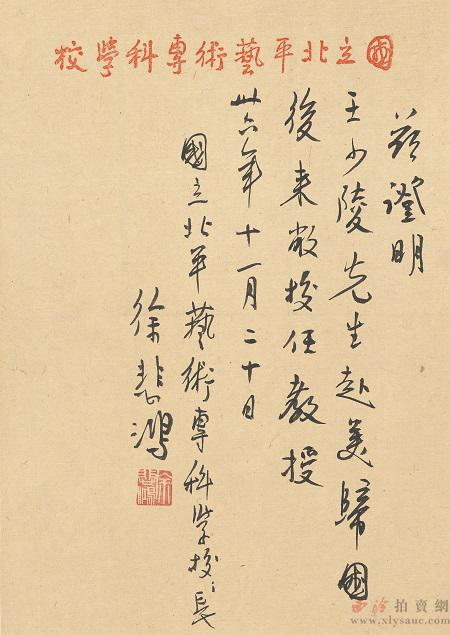 國立北平藝術專科學校
茲證明
王少陵先生赴美歸國
後來敝校任教授
卅六年十一月二十日
國立北平藝術專科學校校長
徐悲鴻
西泠拍賣網
www.xlysauc.com